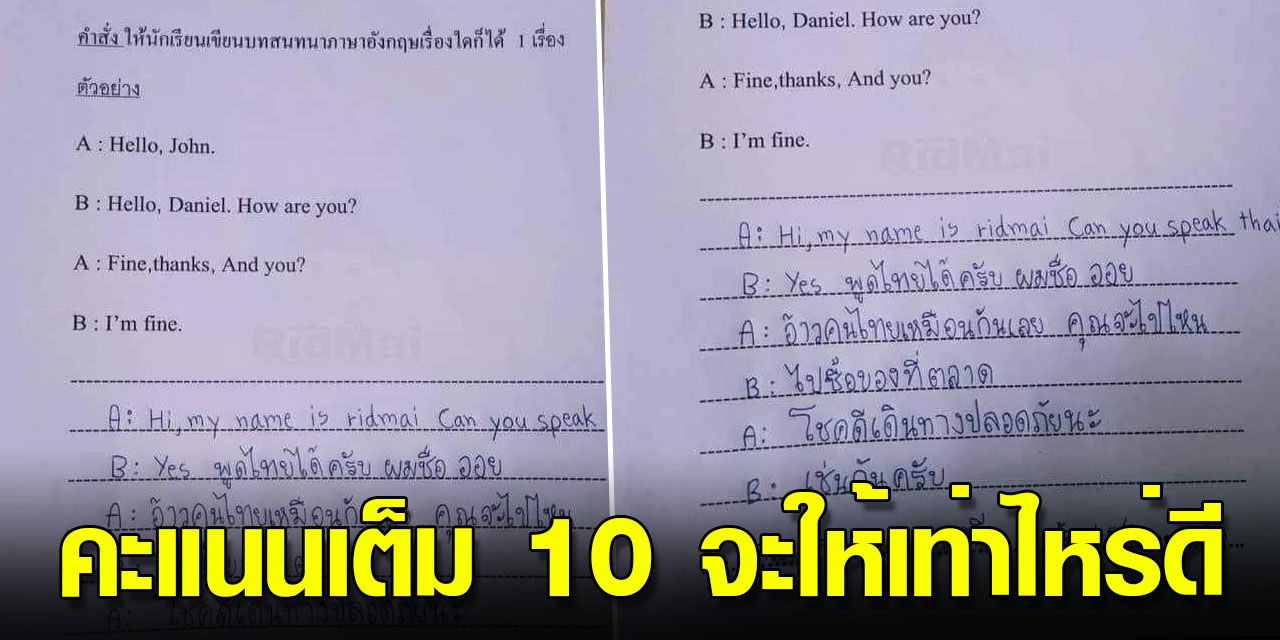 คำสั่ง ให้นักเรียนเขียนบทสนทนาภาษาอังกฤษเรื่องใดก็ได้ 1 เรื่อง
ตัวอย่าง
A : Hello, John.
B : Hello, Daniel. How are you?
A : Fine,thanks, And you?
B : I'm fine.
RidMai
A: Hi, my name is ridmai Can you speak
B: Yes พูดไทยได้ครับ ผมชื่อ ออย
A: อ้าวคนไทยเหมือนกัน คุณจะไปไหน
A: โชคดีเดินทางปลอดภัยนะ
B : Hello, Daniel. How are you?
A : Fine,thanks, And you?
B : I'm fine.
RidMai
A: Hi, my name is ridmai Can you speak thai
B: Yes พูดไทยได้ครับ ผมชื่อ ออย
A: อ้าวคนไทยเหมือนกันเลย คุณจะไปไหน
B: ไปซื้อของที่ตลาด
A: โชคดีเดินทางปลอดภัยนะ
B: เช่นกันครับ
คะแนนเต็ม 10 จะให้เท่าไหร่ดี